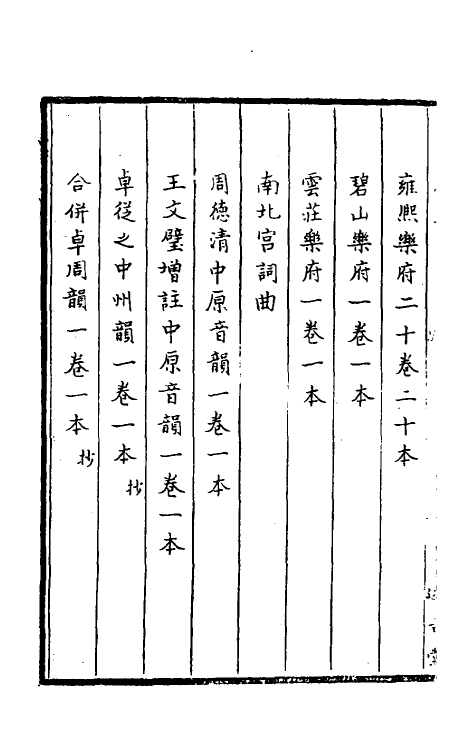 雍熙樂府二十卷二十本
碧山樂府一卷一本
雲莊樂府一卷一本
南北宫詞曲
周德清中原音韻一卷一本
王文璧增註中原音韻一卷一本
卓從之中州韻一卷一本抄
合併卓周韻一卷一本抄